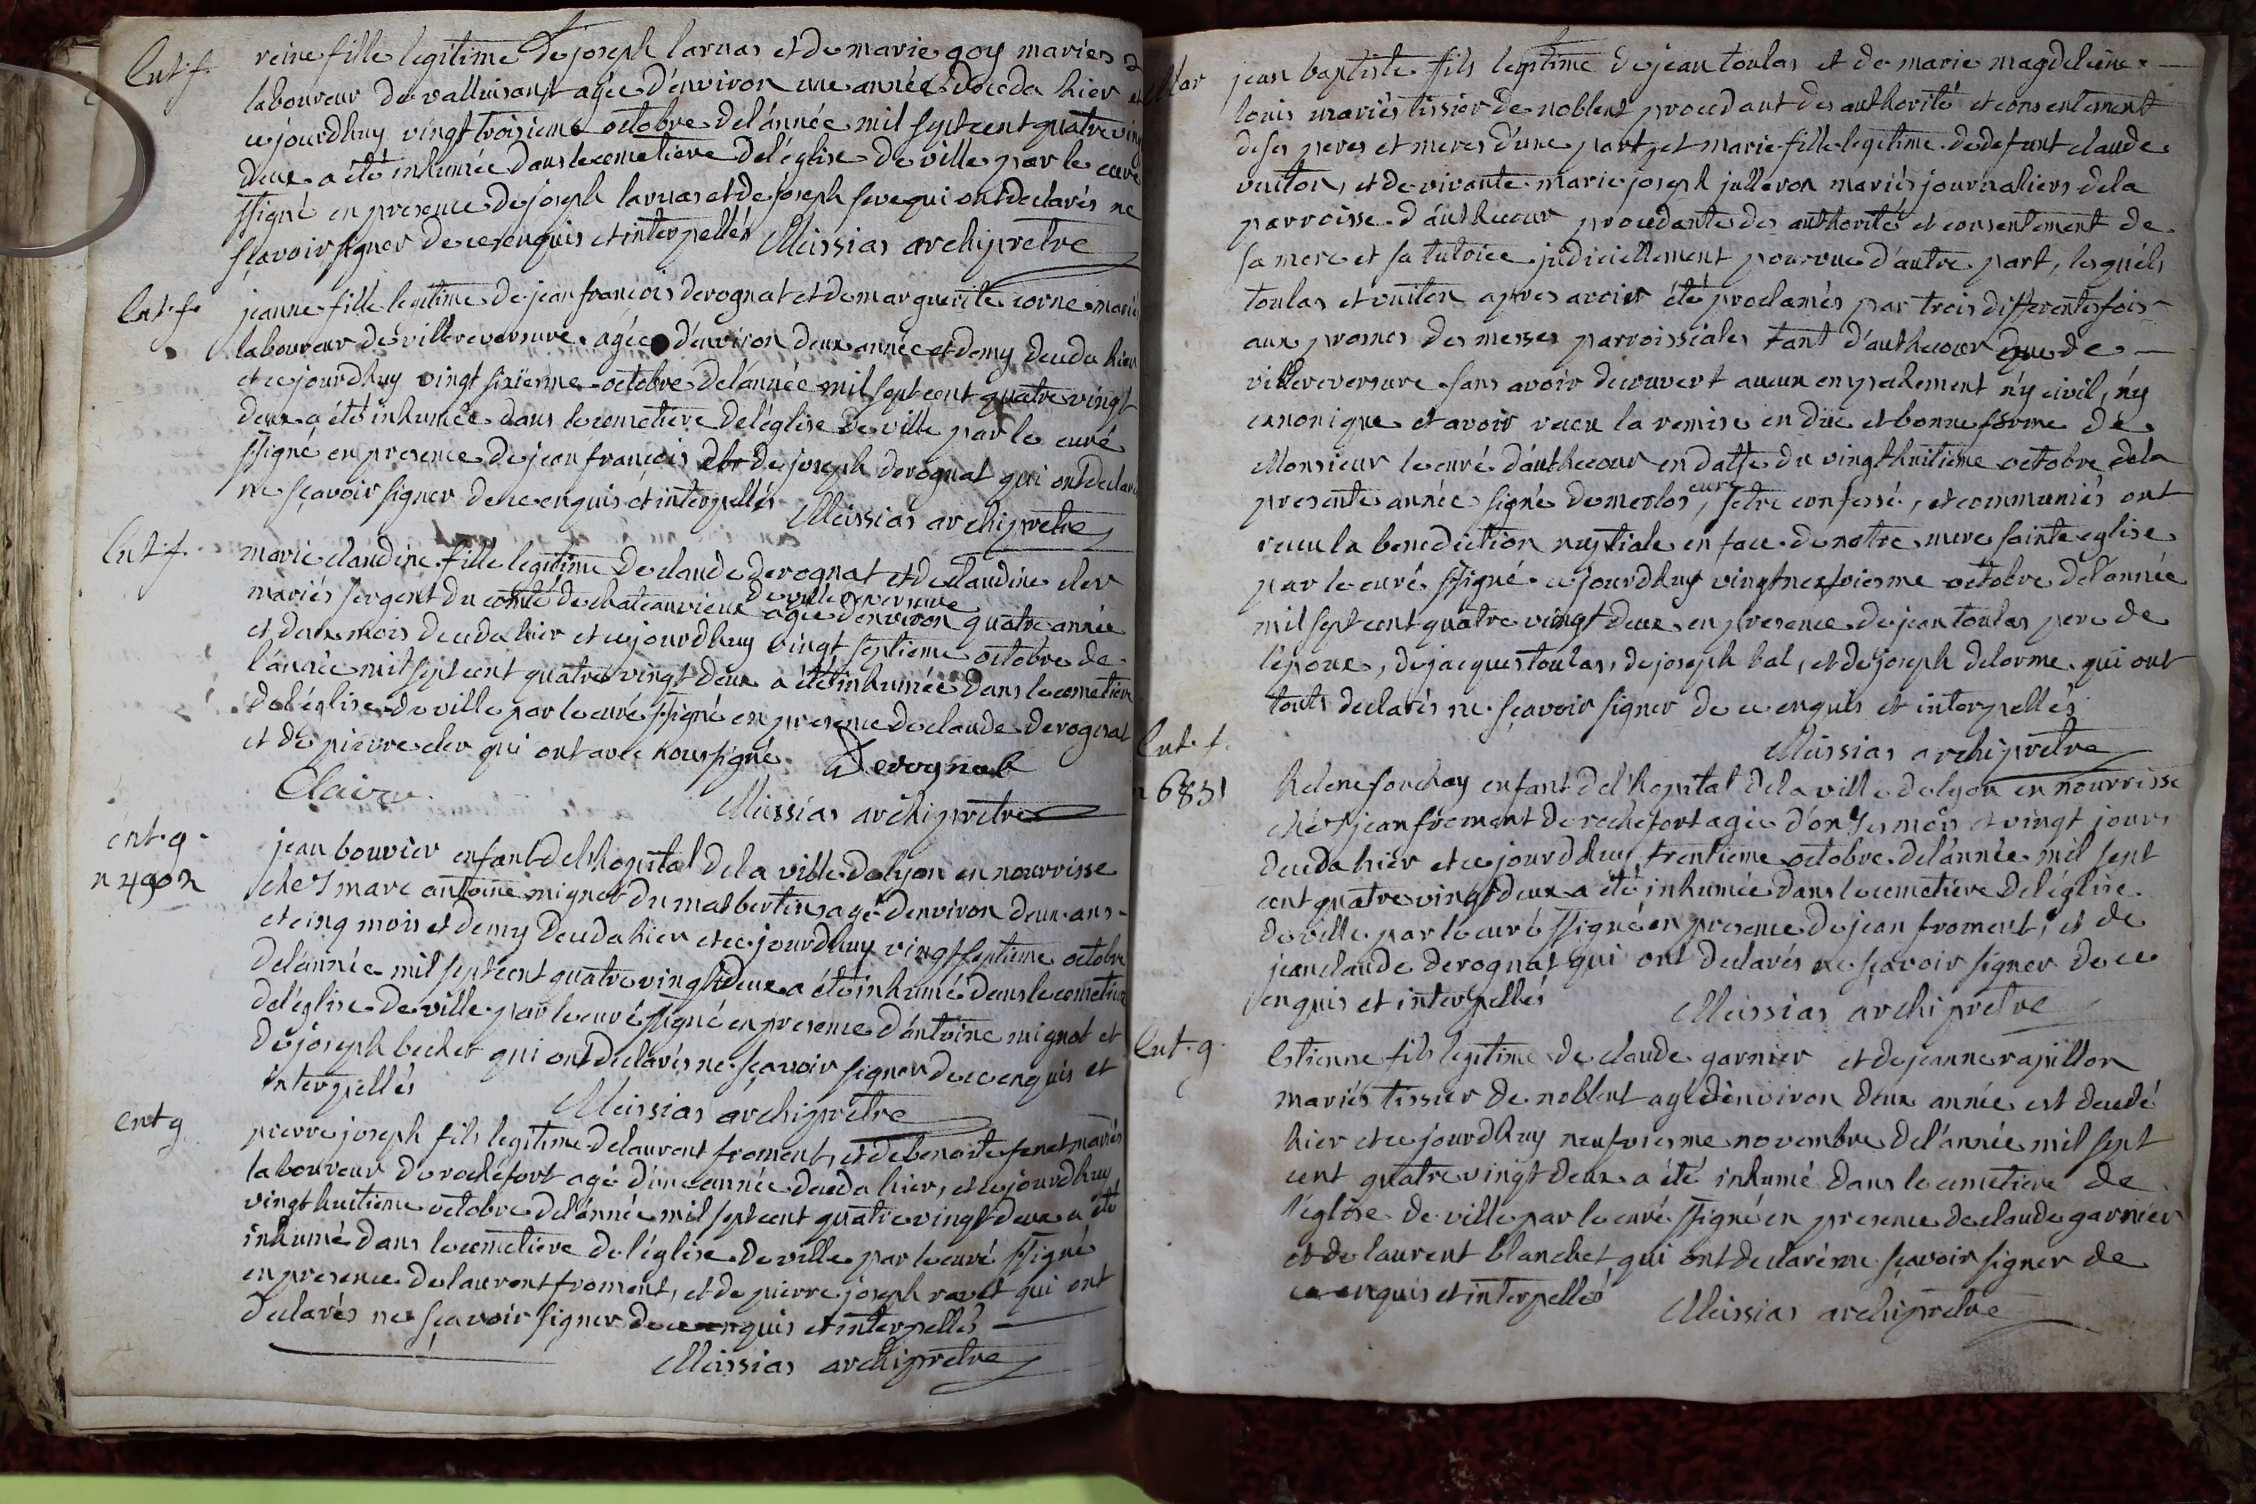 Ent. f.
reine fille legitime de joseph laruas et de marie goy mariés
laboureur de valluisant agée d'environ une année deceda hier et
cejourdhuy vingt troisieme octobre del'année mil sept cent quatre vingt
deux a été inhumée dans le cemetiere del'église de ville par le curé
ssigné en presence de joseph laruas et de joseph seve qui ont declarés ne
sçavoir signer de ce enquis et interpellés Meissias archipretre
Ent. f.
jeanne fille legitime de jean francois derognat et de marguerite corne mariés
laboureur de villereversure agée d'environ deux année et demy deceda hier
et cejourdhuy vingt sixieme octobre del'année mil sept cent quatre vingt
deux a été inhumée dans le cemetiere del'église de ville par le curé
ssigné en presence de jean francois et de joseph derognat qui ont declaré
ne sçavoir signer de ce enquis et interpellés
Meissias archipretre
Ent. f.
marie claudine fille legitime de claude derognat et de claudine cler
mariés sergent du comté de chateauvieux de villereversure agée d'environ quatre année
et deux mois deceda hier et cejourdhuy vingt septieme octobre de
l'année mil sept cent quatre vingt deux a été inhumée dans le cemetiere
del'église de ville par le curé ssigné en presence de claude derognat
et de pierre cler qui ont avec nous signé. Derognat
Claire
Meissias archipretre
ent. g.
n 4902
jean bouvier enfant del'hopital dela ville de lyon en nourrisse
chez marc antoine mignot du masbertin agé d'environ deux ans
et cinq mois et demy deceda hier et cejourdhuy vingt septieme octobre
del'année mil sept cent quatre vingt deux a été inhumé dans le cemetiere
del'église de ville par le curé ssigné en presence d'antoine mignot et
de joseph bechet qui ont declarés ne sçavoir signer de ce enquis et
interpellés
Meissias archipretre
ent g
pierre joseph fils legitime de laurent froment, et de benoite fenet mariés
laboureur de rochefort agé d'une année deceda hier, et cejourdhuy
vingt huitieme octobre del'année mil sept cent quatre vingt deux a été
inhumé dans le cemetiere del'église de ville par le curé ssigné
en presence de laurent froment, et de pierre joseph ravet qui ont
declarés ne sçavoir signer de ce enquis et interpellés
Meissias archipretre
Mar
jean baptiste fils legitime de jean toulas et de marie magdeleine
louis mariés tissier de noblent procedant des authorité et consentement
de ses peres et meres d'une part, et marie fille legitime de defunt claude
vuiton, et de vivante marie joseph julleron mariés journaliers dela
parroisse d'authecour procedante des authorité et consentement de
sa mere et sa tutrice judiciellement pourvue d'autre part, lesquels
toulas et vuiton apres avoir été proclamés par trois differentes fois
aux prosnes des messes parroissiales tant d'authecour que de
villereversure sans avoir decouvert aucun enpechement n'y civil, n'y
canonique et avoir receu la remise en düe et bonne forme de
Monsieur le curé d'authecour en datte du vingt huitieme octobre dela
presente année signé demerlos curé, s'etre confessé, et communiés ont
receu la benediction nuptiale en face de notre mere sainte eglise
par le curé ssigné cejourdhuy vingt neufviesme octobre del'année
mil sept cent quatre vingt deux en presence de jean toulas pere de
l'epoux, de jacques toulas, de joseph bal, et de joseph delorme qui ont
touts declarés ne sçavoir signer de ce enquis et interpellés
Meissias archipretre
Ent. f.
n 6831
helene fonchay enfant del'hopital dela ville de lyon en nourrisse
chez jean froment de rochefort agée d'onzes mois et vingt jours
deceda hier et cejourdhuy trentieme octobre del'année mil sept
cent quatre vingt deux a été inhumée dans le cemetiere del'église
de ville par le curé ssigné en presence de jean froment, et de
jean claude derognat qui ont declarés ne sçavoir signer de ce
enquis et interpellés
Meissias archipretre
Ent. g.
Estienne fils legitime de claude garnier et de jeanne rapillon
mariés tissier de noblent agé d'environ deux année est decedé
hier et cejourdhuy neufviesme novembre del'année mil sept
cent quatre vingt deux a été inhumé dans le cemetiere de
l'église de ville par le curé ssigné en presence de claude garnier
et de laurent blanchet qui ont declarés ne sçavoir signer de
ce enquis et interpellés
Meissias archipretre